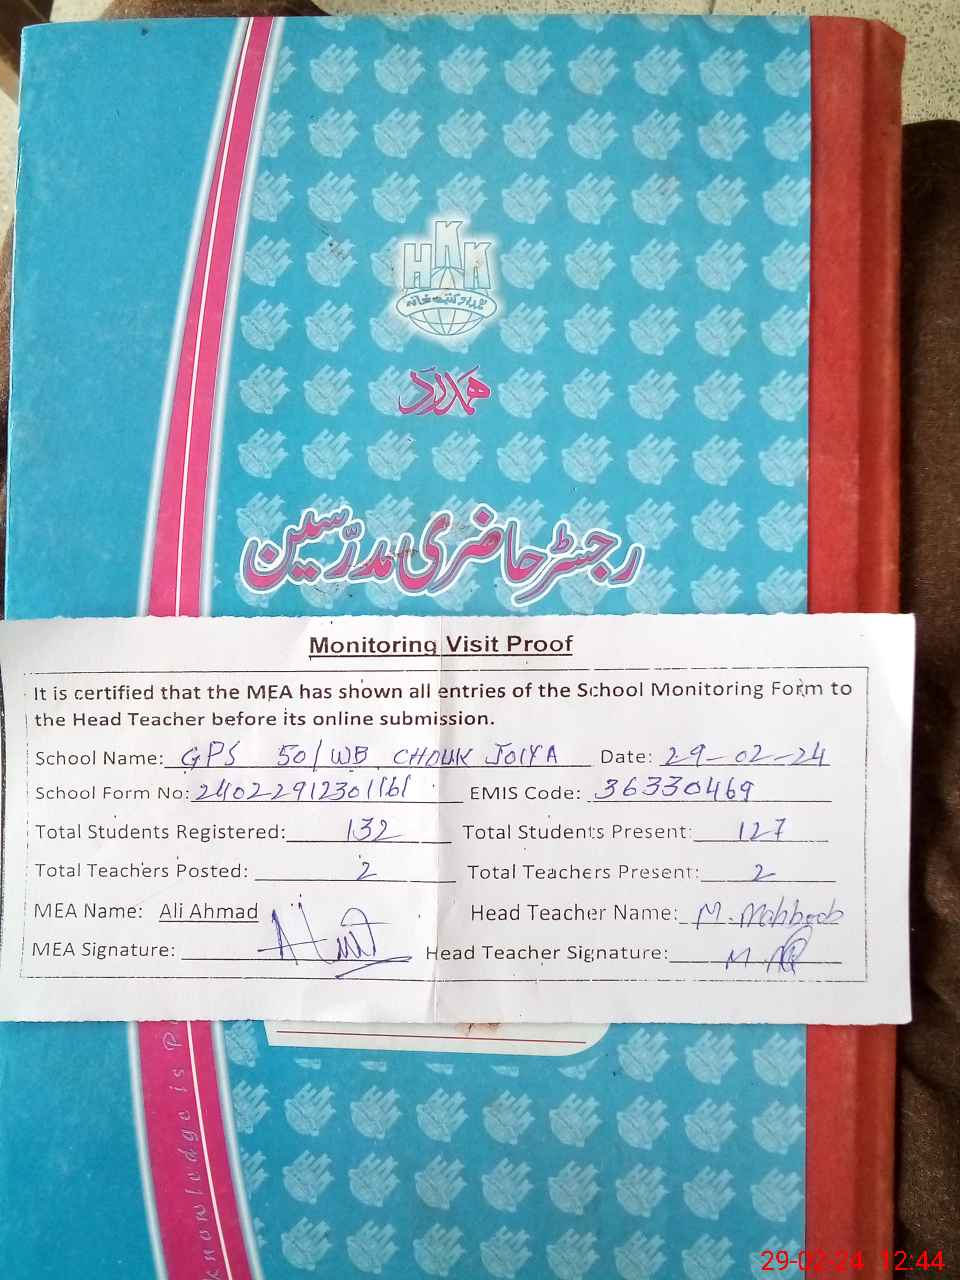 HKK
ہمدرد کتب خانہ
ہمدرد
رجسٹر حاضری مدرّسین
Monitoring Visit Proof
It is certified that the MEA has shown all entries of the School Monitoring Form to
the Head Teacher before its online submission.
School Name: GPS 50/WB CHOUK JOIYA Date: 29-02-24
School Form No: 24022912301161 EMIS Code: 36330469
Total Students Registered: 132 Total Students Present: 127
Total Teachers Posted: 2 Total Teachers Present: 2
MEA Name: Ali Ahmad Head Teacher Name: M. Mahboob
MEA Signature: Head Teacher Signature:
knowledge is
29-02-24 12:44